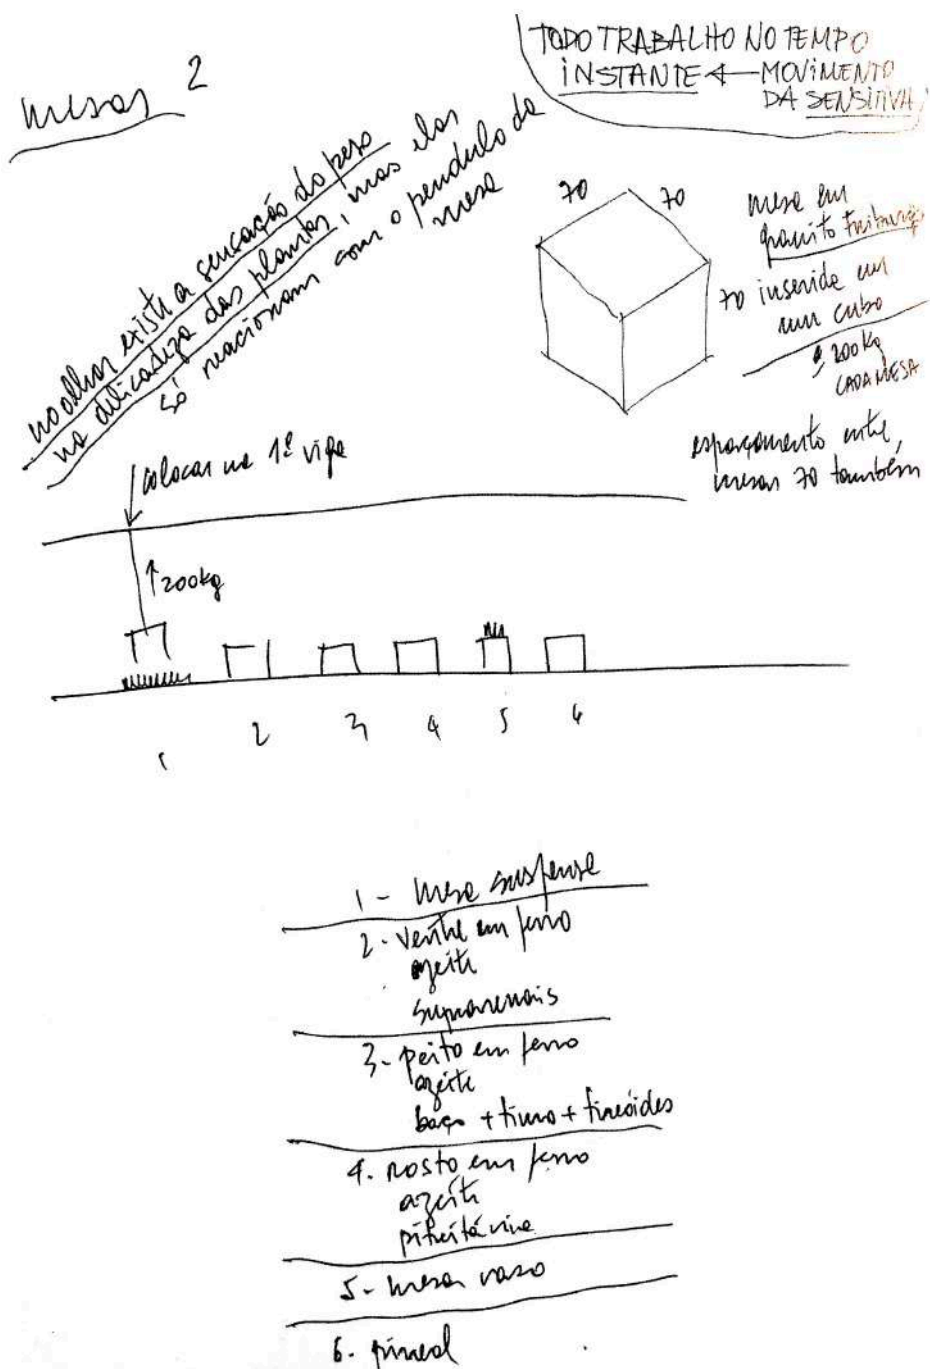 mesas 2
TODO TRABALHO NO TEMPO
INSTANTE ← MOVIMENTO
DA SENSITIVA
no olhar existe a sensação do peso
na delicadeza das plantas, mas elas
só reacionam com o pendulo da
mesa
70 70
70
mesa em
granito
inserida em
um cubo
200kg
CADA MESA
espaçamento entre
mesas 70 também
colocar na 1ª viga
↑200kg
1 2 3 4 5 6
1 - mesa suspensa
2 - ventre em ferro
azeite
suprarenais
3 - peito em ferro
azeite
baço + timo + tireóides
4. rosto em ferro
azeite
pituitárina
5 - mesa vaso
6. pineal